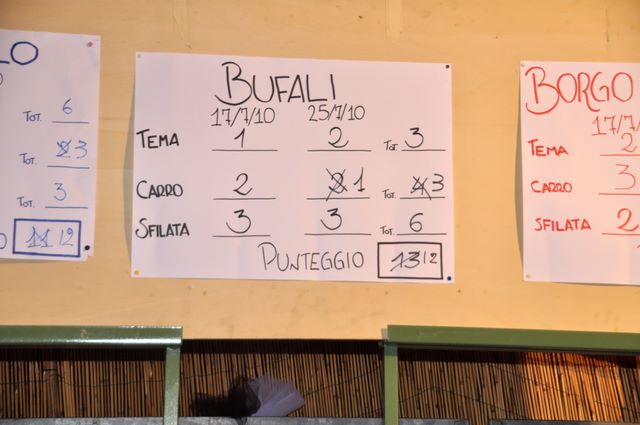 LO
TOT. 6
TOT. 2 3
TOT. 3
11 12
BUFALI
17/7/10 25/7/10
TEMA 1 2 TOT 3
CARRO 2 2 1 TOT. 4 3
SFILATA 3 3 TOT. 6
PUNTEGGIO 13 12
BORGO
17/7/
TEMA 2
CARRO 3
SFILATA 2